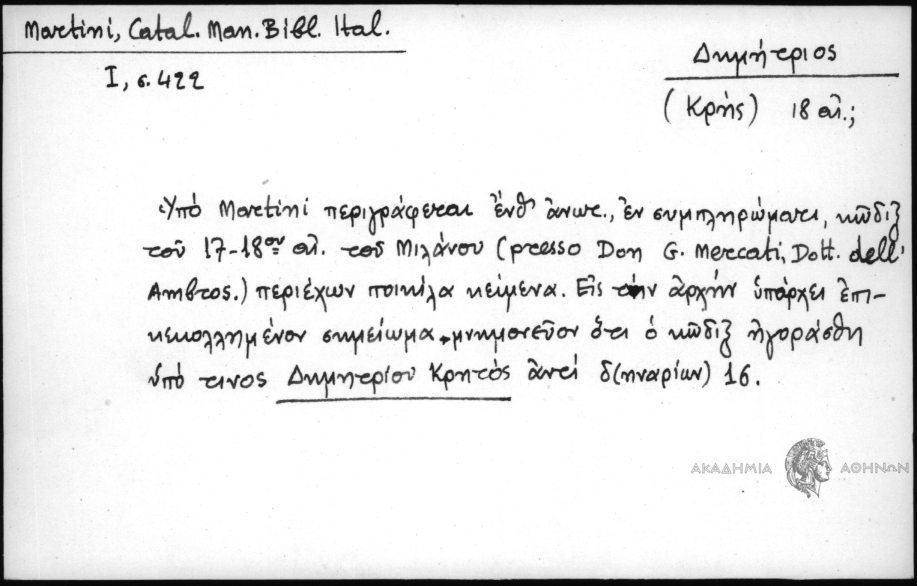 Martini, Catal. Man. Bibl. Ital.
I, σ. 422
Δημήτριος
(Κρής) 18 αἰ.;
Ὑπό Martini περιγράφεται ἔνθ' ἄνωτ., ἐν συμπληρώματι, κῶδιξ
τοῦ 17-18ου αἰ. τοῦ Μιλάνου (presso Don G. Mercati, Dott. dell'
Ambros.) περιέχων ποικίλα κείμενα. Εἰς τὴν ἀρχὴν ὑπάρχει ἐπι-
κεκολλημένον σημείωμα μνημονεῦον ὅτι ὁ κῶδιξ ἠγοράσθη
ὑπό τινος Δημητρίου Κρητὸς ἀντί δ(ηναρίων) 16.
ΑΚΑΔΗΜΙΑ ΑΘΗΝΩΝ